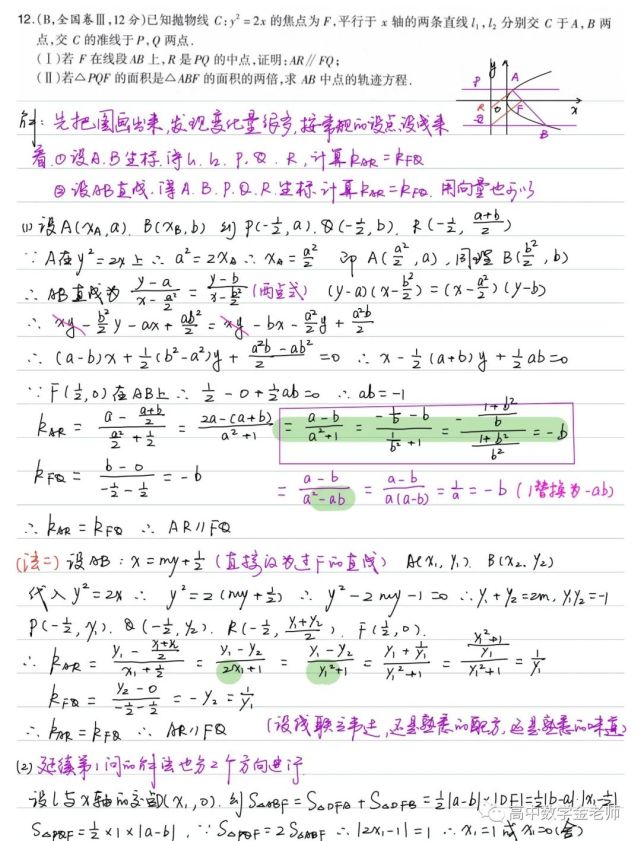 12.(B,全国卷Ⅲ,12分)已知抛物线 C:y²=2x 的焦点为 F,平行于 x 轴的两条直线 l₁,l₂ 分别交 C 于 A,B 两
点,交 C 的准线于 P,Q 两点.
(Ⅰ)若 F 在线段 AB 上,R 是 PQ 的中点,证明:AR∥FQ;
(Ⅱ)若△PQF 的面积是△ABF 的面积的两倍,求 AB 中点的轨迹方程.
y
P A
R O F x
Q B
解: 先把图画出来,发现变化量很多,按常规的设点设线来
看.①设A.B坐标.得l₁.l₂.P.Q.R,计算k_AR=k_FQ
②设AB直线.得A.B.P.Q.R.坐标.计算k_AR=k_FQ. 用向量也可以
(1) 设A(x_A,a). B(x_B,b) 则 P(-1/2,a). Q(-1/2,b). R(-1/2, (a+b)/2)
∵ A在y²=2x上 ∴ a²=2x_A ∴ x_A=a²/2 即 A(a²/2,a), 同理 B(b²/2,b)
∴ AB直线为 (y-a)/(x-a²/2) = (y-b)/(x-b²/2) (两点式) (y-a)(x-b²/2)=(x-a²/2)(y-b)
∴ xy-b²/2 y-ax+ab²/2 = xy-bx-a²/2 y+a²b/2
∴ (a-b)x+1/2(b²-a²)y+(a²b-ab²)/2=0 ∴ x-1/2(a+b)y+1/2ab=0
∵ F(1/2,0)在AB上 ∴ 1/2-0+1/2ab=0 ∴ ab=-1
k_AR = (a-(a+b)/2)/(a²/2+1/2) = (2a-(a+b))/(a²+1) = (a-b)/(a²+1) = (-1/b-b)/(1/b²+1) = -((1+b²)/b)/((1+b²)/b²) = -b
k_FQ = (b-0)/(-1/2-1/2) = -b
= (a-b)/(a²-ab) = (a-b)/(a(a-b)) = 1/a = -b (1替换为-ab)
∴ k_AR=k_FQ ∴ AR∥FQ
(法二) 设AB: x=my+1/2 (直接设为过F的直线) A(x₁,y₁). B(x₂,y₂)
代入y²=2x ∴ y²=2(my+1/2) ∴ y²-2my-1=0 ∴ y₁+y₂=2m, y₁y₂=-1
P(-1/2,y₁). Q(-1/2,y₂). R(-1/2,(y₁+y₂)/2). F(1/2,0).
∴ k_AR = (y₁-(y₁+y₂)/2)/(x₁+1/2) = (y₁-y₂)/(2x₁+1) = (y₁-y₂)/(y₁²+1) = (y₁+1/y₁)/(y₁²+1) = ((y₁²+1)/y₁)/(y₁²+1) = 1/y₁
k_FQ = (y₂-0)/(-1/2-1/2) = -y₂ = 1/y₁
∴ k_AR=k_FQ ∴ AR∥FQ (设线联立韦达,还是熟悉的配方,还是熟悉的味道)
(2) 延续第1问的解法也分2个方向进行
设l与x轴的交点D(x₁,0). 则S△ABF=S△DFA+S△DFB=1/2|a-b|·|DF|=1/2|b-a|·|x₁-1/2|
S△PQF=1/2×1×|a-b|, ∵ S△PQF=2S△ABF ∴ |2x₁-1|=1 ∴ x₁=1或x₁=0(舍)
高中数学金老师